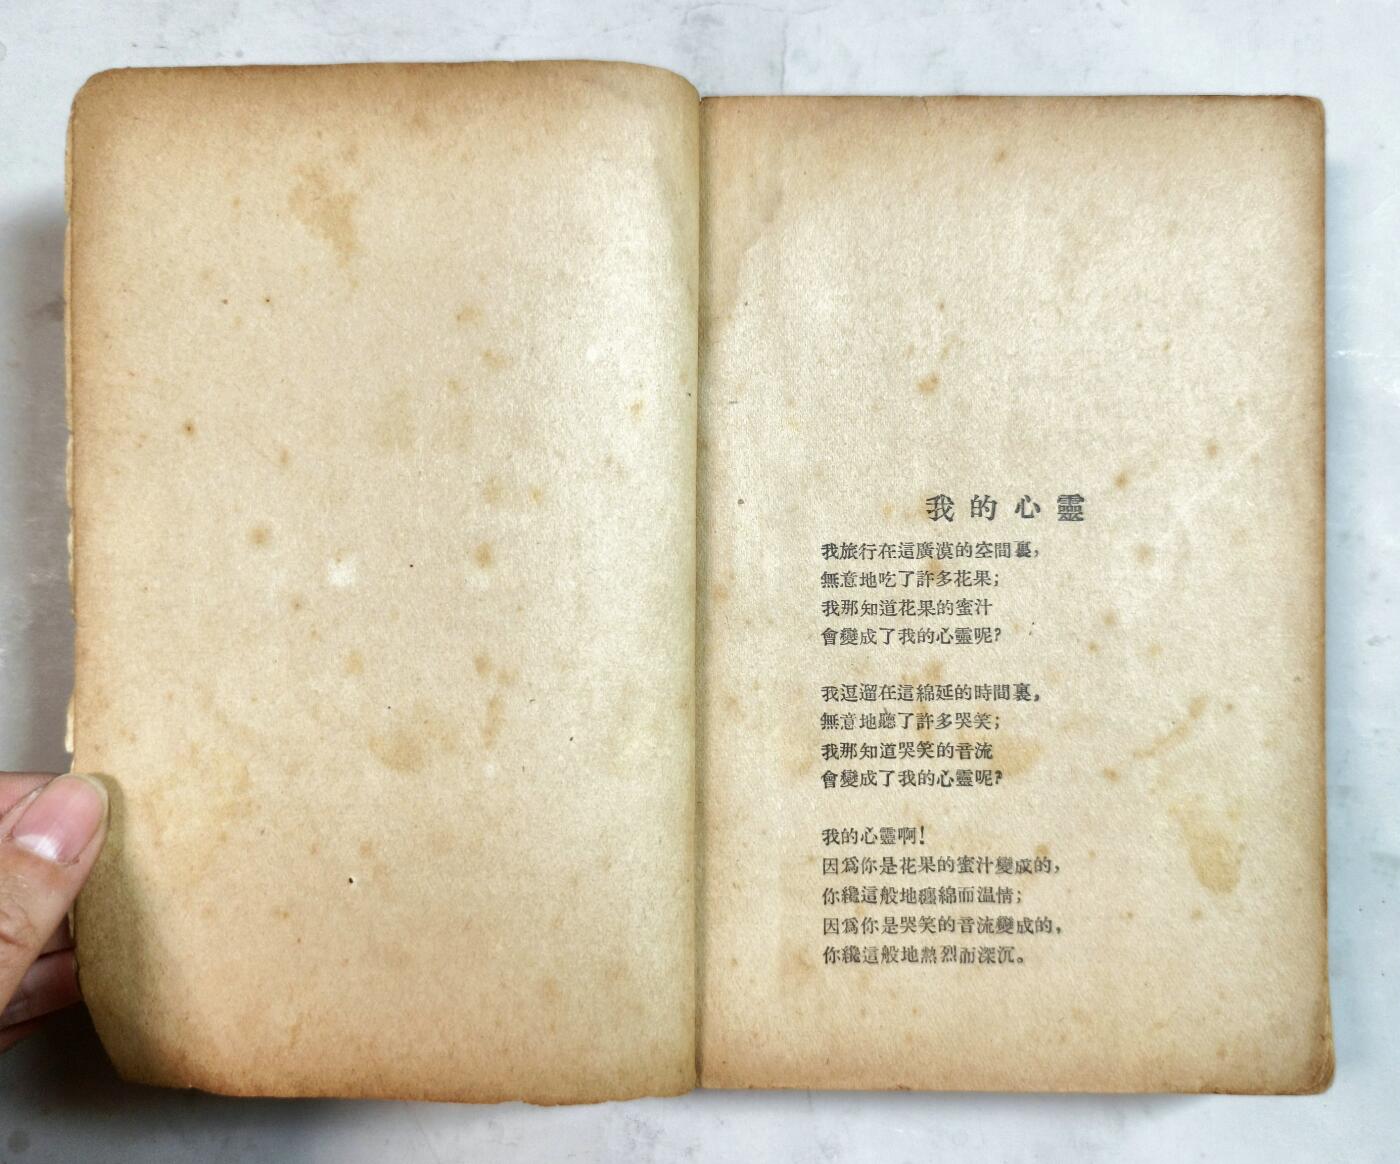 我的心靈
我旅行在這廣漠的空間裏，
無意地吃了許多花果；
我那知道花果的蜜汁
會變成了我的心靈呢？
我逗遛在這綿延的時間裏，
無意地聽了許多哭笑；
我那知道哭笑的音流
會變成了我的心靈呢？
我的心靈啊！
因爲你是花果的蜜汁變成的，
你纔這般地纏綿而温情；
因爲你是哭笑的音流變成的，
你纔這般地熱烈而深沉。